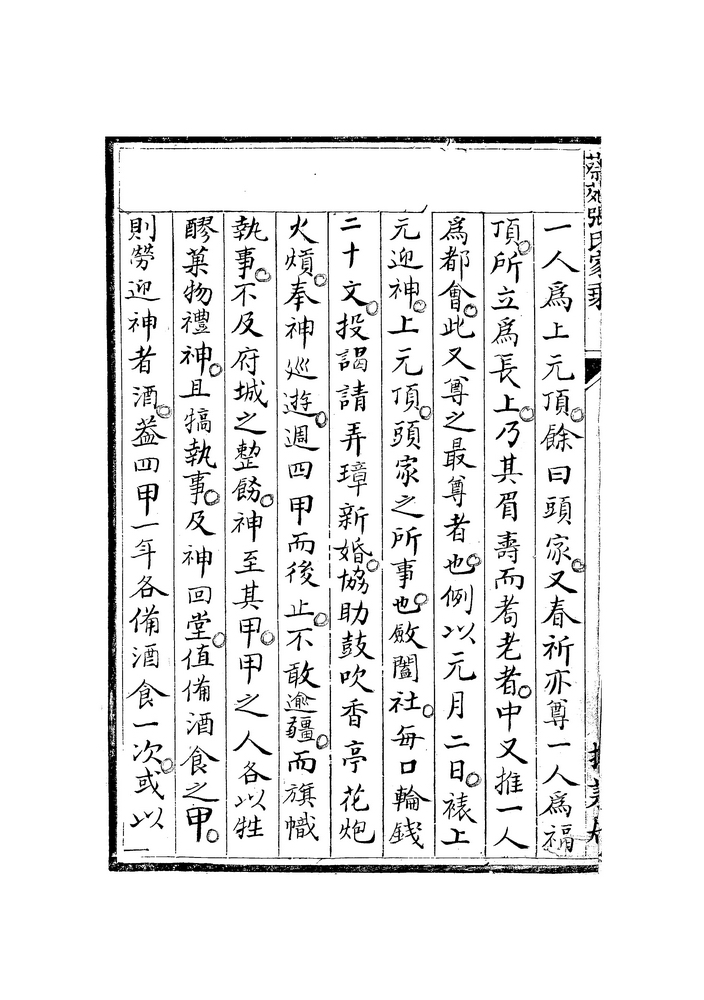 一人爲上元頂。餘曰頭家。又春祈亦尊一人爲福
頂。所立爲長上。乃其眉壽而耈老者。中又推一人
爲都會。此又尊之最尊者也。例以元月二日。裱上
元迎神。上元頂。頭家之所事也。斂闔社。每口輪錢
二十文。投謁請弄璋新婚。協助鼓吹香亭花炮
火熕。奉神巡遊。週四甲而後止。不敢逾疆。而旗幟
執事。不及府城之整飭。神至其甲。甲之人各以牲
醪菓物禮神。且犒執事。及神回堂。值備酒食之甲。
則勞迎神者酒。葢四甲一年各備酒食一次。或以
張氏家